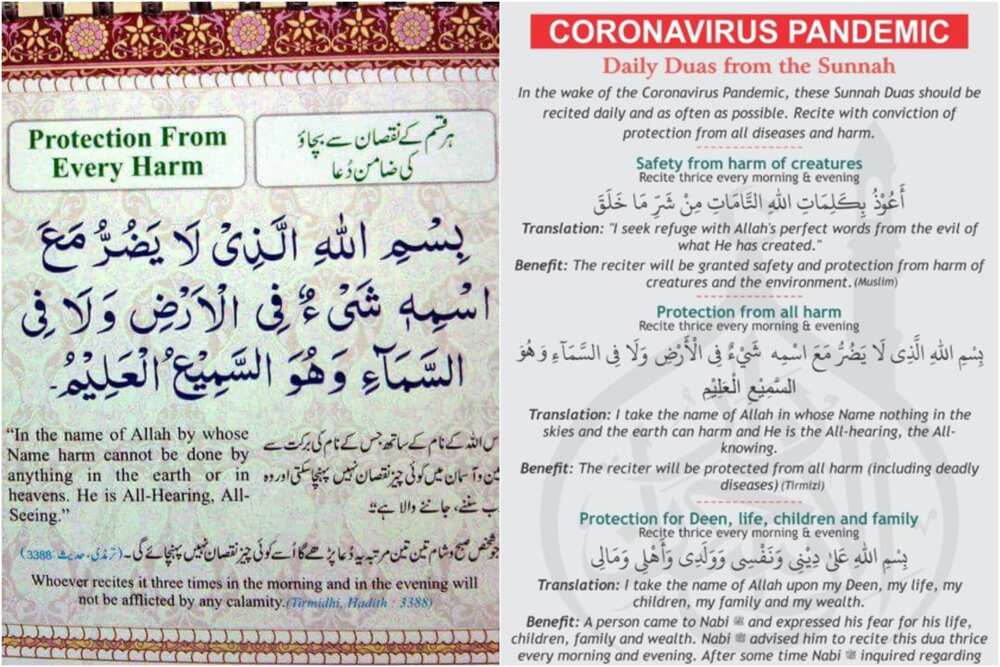 Protection From
Every Harm
ہر قسم کے نقصان سے بچاؤ
کی ضامن دُعا
بِسْمِ اللّٰهِ الَّذِیْ لَا یَضُرُّ مَعَ
اسْمِهٖ شَیْءٌ فِی الْاَرْضِ وَلَا فِی
السَّمَآءِ وَهُوَ السَّمِیْعُ الْعَلِیْمُ۔
“In the name of Allah by whose
Name harm cannot be done by
anything in the earth or in
heavens. He is All-Hearing, All-
Seeing.”
اللہ کے نام کے ساتھ جس کے نام کی برکت سے
و آسمان میں کوئی چیز نقصان نہیں پہنچا سکتی اور وہ
سننے، جاننے والا ہے“
شخص صبح و شام تین تین مرتبہ یہ دُعا پڑھے گا اُسے کوئی چیز نقصان نہیں پہنچائے گی۔ (ترمذی، حدیث: 3388)
Whoever recites it three times in the morning and in the evening will
not be afflicted by any calamity.(Tirmidhi, Hadith : 3388)
CORONAVIRUS PANDEMIC
Daily Duas from the Sunnah
In the wake of the Coronavirus Pandemic, these Sunnah Duas should be
recited daily and as often as possible. Recite with conviction of
protection from all diseases and harm.
Safety from harm of creatures
Recite thrice every morning & evening
أَعُوْذُ بِكَلِمَاتِ اللّٰهِ التَّامَّاتِ مِنْ شَرِّ مَا خَلَقَ
Translation: "I seek refuge with Allah's perfect words from the evil of
what He has created."
Benefit: The reciter will be granted safety and protection from harm of
creatures and the environment.(Muslim)
Protection from all harm
Recite thrice every morning & evening
بِسْمِ اللّٰهِ الَّذِى لَا يَضُرُّ مَعَ اسْمِه شَيْءٌ فِى الْأَرْضِ وَلَا فِى السَّمَآءِ وَهُوَ
السَّمِيْعُ الْعَلِيْمُ
Translation: I take the name of Allah in whose Name nothing in the
skies and the earth can harm and He is the All-hearing, the All-
knowing.
Benefit: The reciter will be protected from all harm (including deadly
diseases)(Tirmizi)
Protection for Deen, life, children and family
Recite thrice every morning & evening
بِسْمِ اللّٰهِ عَلىٰ دِيْنِى وَنَفْسِى وَوَلَدِى وَأَهْلِى وَمَالِى
Translation: I take the name of Allah upon my Deen, my life, my
children, my family and my wealth.
Benefit: A person came to Nabi ﷺ and expressed his fear for his life,
children, family and wealth. Nabi ﷺ advised him to recite this dua thrice
every morning and evening. After some time Nabi ﷺ inquired regarding